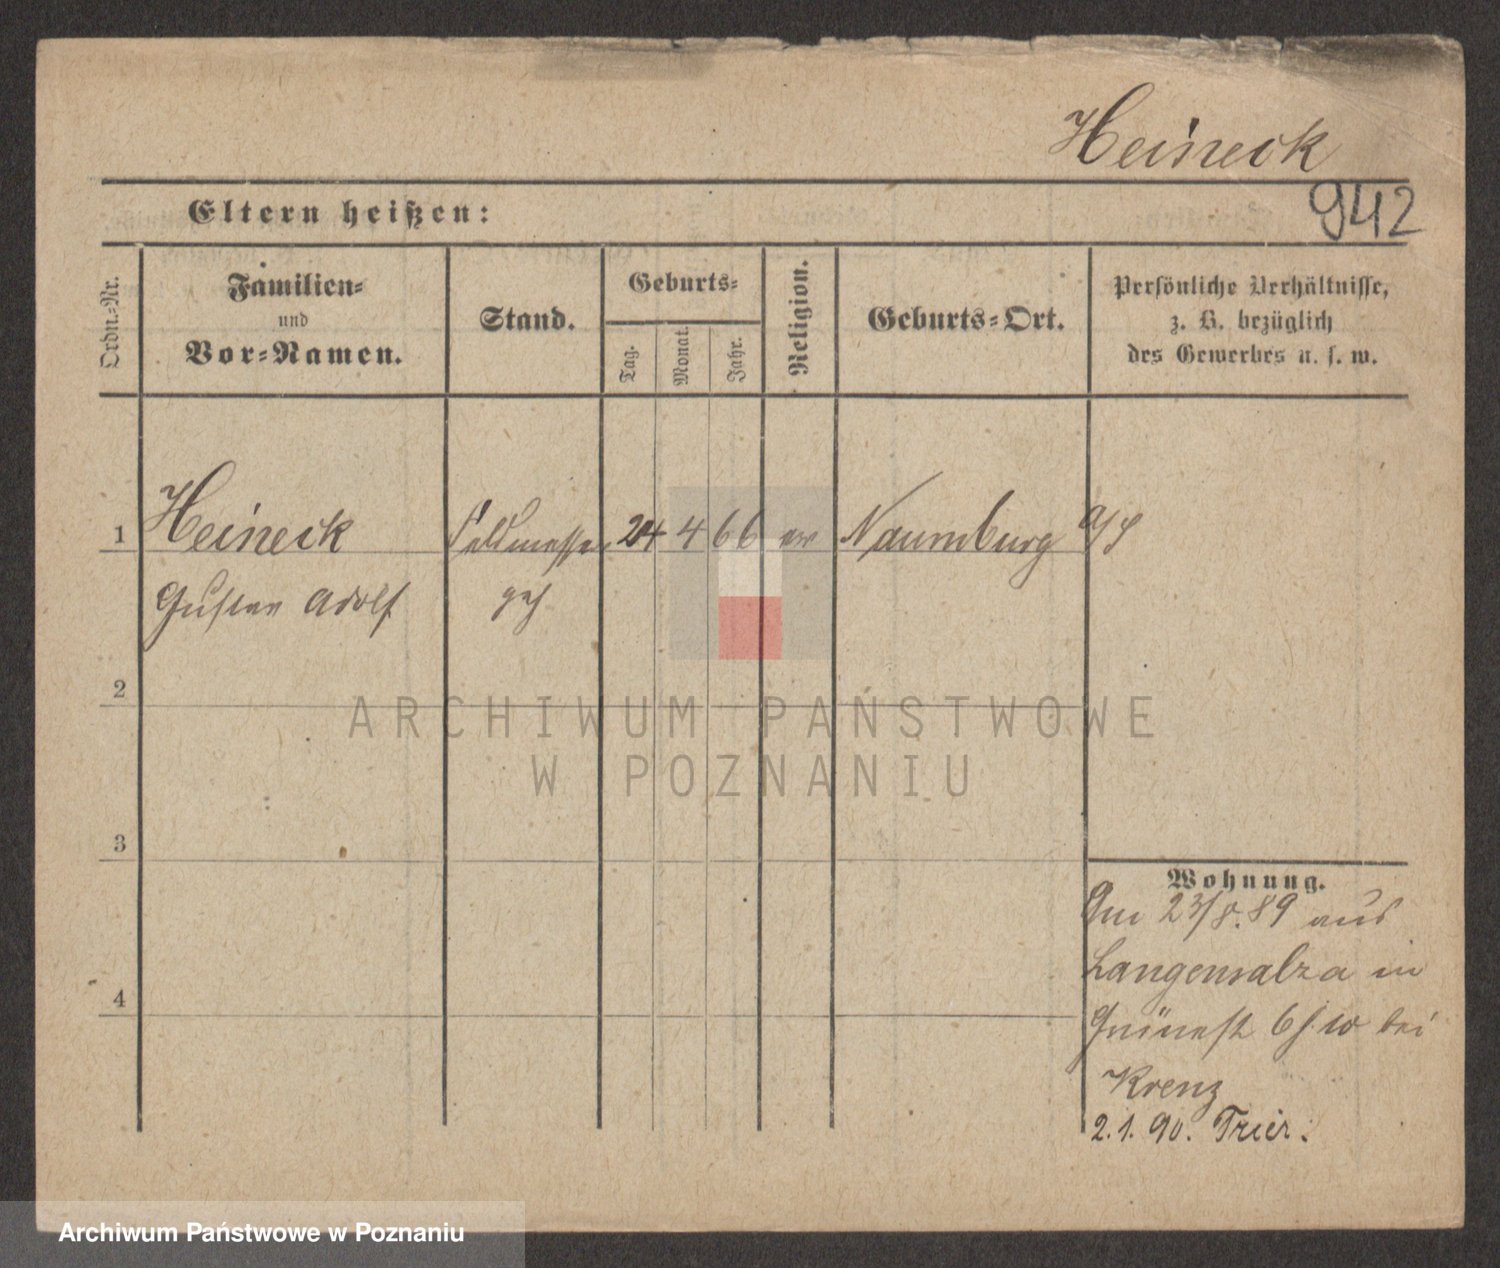 Heineck
942
Eltern heißen:
Ordn.-Nr.
Familien-
und
Vor-Namen.
Stand.
Geburts-
Tag.
Monat.
Jahr.
Religion.
Geburts-Ort.
Persönliche Verhältnisse,
z. B. bezüglich
des Gewerbes u. s. w.
1 Heineck Feldmesser 24 4 66 ev Naumburg a/S
Gustav Adolf geh
2
ARCHIWUM PAŃSTWOWE
W POZNANIU
3
Wohnung.
Am 23/8.89 aus
Langensalza in
4
bei
Krenz
2.1.90. Trier.
Archiwum Państwowe w Poznaniu